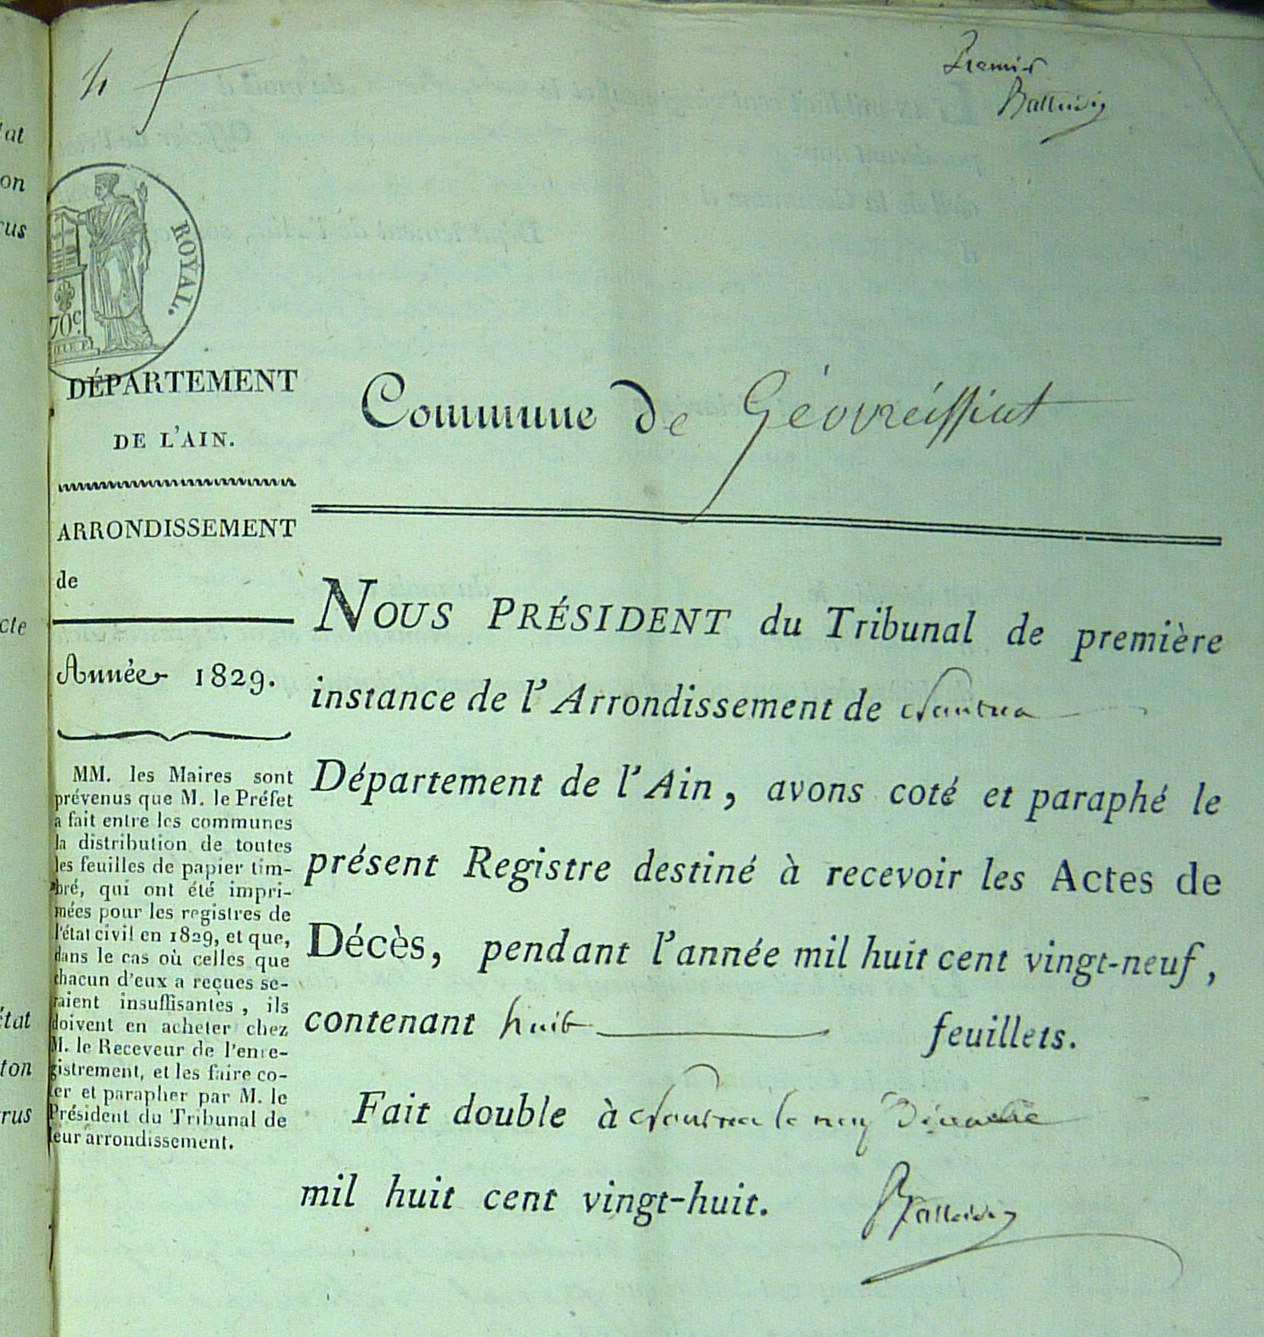 Premier
ROYAL.
70c.
DÉPARTEMENT
DE L'AIN.
ARRONDISSEMENT
de
Année 1829.
MM. les Maires sont
prévenus que M. le Préfet
a fait entre les communes
la distribution de toutes
les feuilles de papier tim-
bré, qui ont été impri-
mées pour les registres de
l'état civil en 1829, et que,
dans le cas où celles que
chacun d'eux a reçues se-
raient insuffisantes, ils
doivent en acheter chez
M. le Receveur de l'enre-
gistrement, et les faire co-
ter et parapher par M. le
Président du Tribunal de
leur arrondissement.
Commune de Géovreissiat
NOUS PRÉSIDENT du Tribunal de première
instance de l'Arrondissement de Nantua
Département de l'Ain, avons coté et paraphé le
présent Registre destiné à recevoir les Actes de
Décès, pendant l'année mil huit cent vingt-neuf,
contenant huit feuillets.
Fait double à Nantua le
mil huit cent vingt-huit.